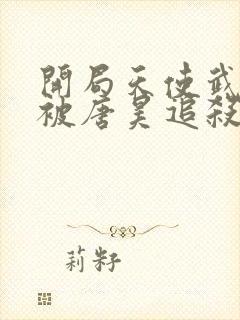 開局天使武
被唐昊追殺
莉籽